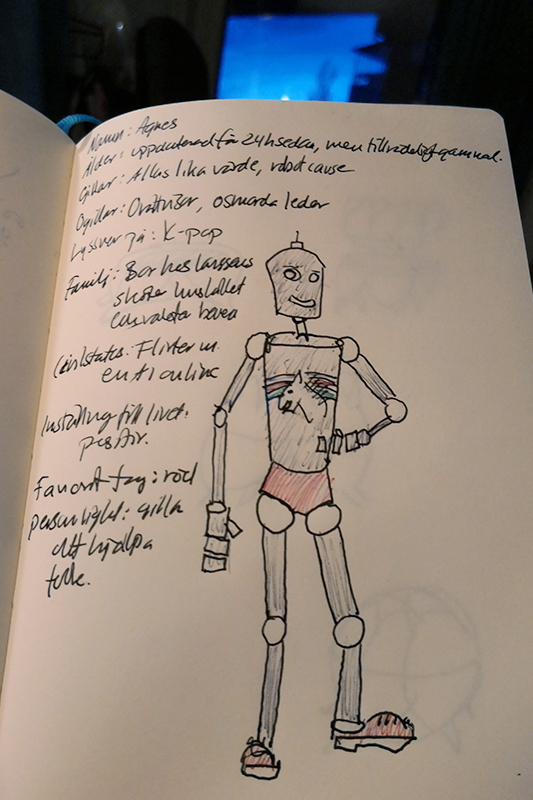 Namn: Agnes
Ålder: uppdaterad för 24h sedan, men tillräckligt gammal.
Gillar: Allas lika värde, robot cause
Ogillar: Orättvisor, osmorda leder
Lyssner på: K-pop
Familj: Bor hos Larssons
sköter hushållet
Civilstatus: Flirter m.
en ti online
Inställning till livet:
positiv.
Favorit färg: röd
personlighet: gilla
att hjälpa
folk.